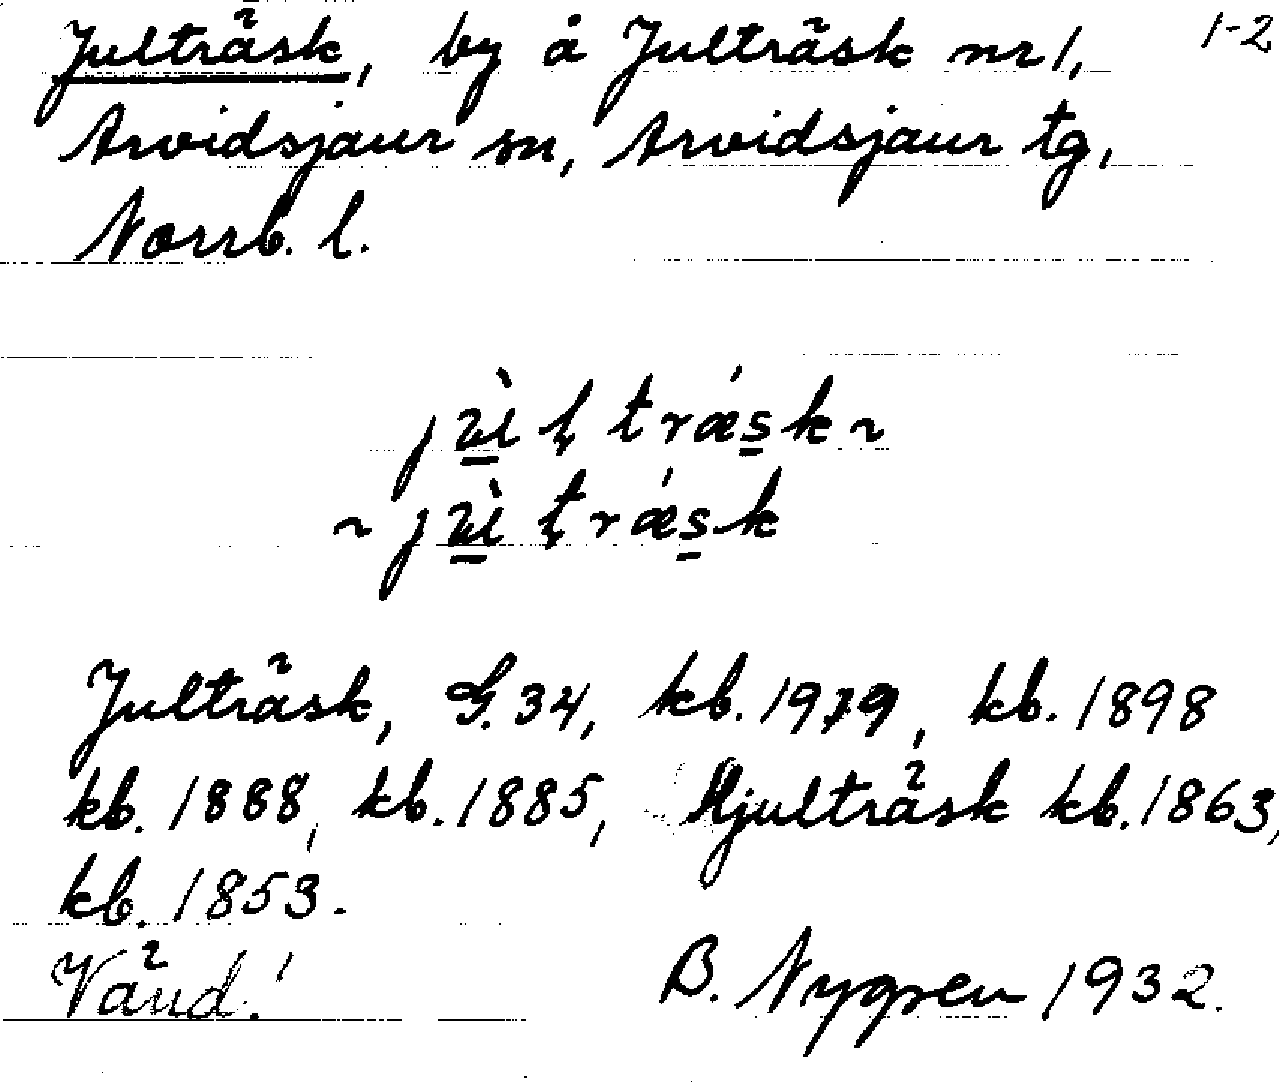 Julträsk, by å Julträsk nr 1, 1-2
Arvidsjaur sn, Arvidsjaur tg,
Norrb. l.
Julträsk, G. 34, kb. 1979, kb. 1898
kb. 1888, kb. 1885, Hjulträsk kb. 1863,
kb. 1853.
Vänd! B. Nygren 1932.